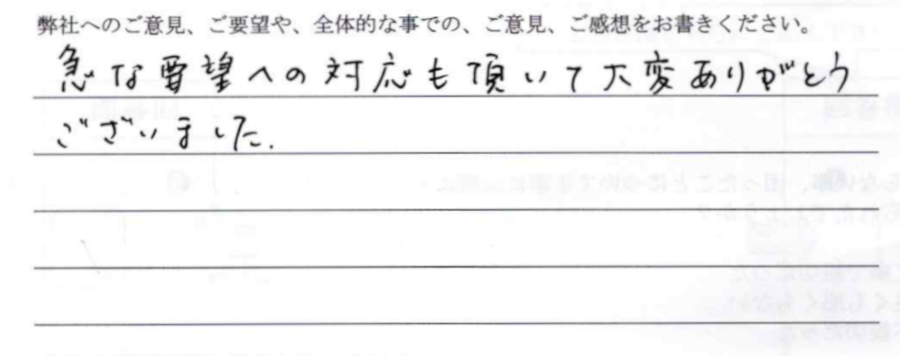 弊社へのご意見、ご要望や、全体的な事での、ご意見、ご感想をお書きください。
急な要望への対応も頂いて大変ありがとう
ございました.